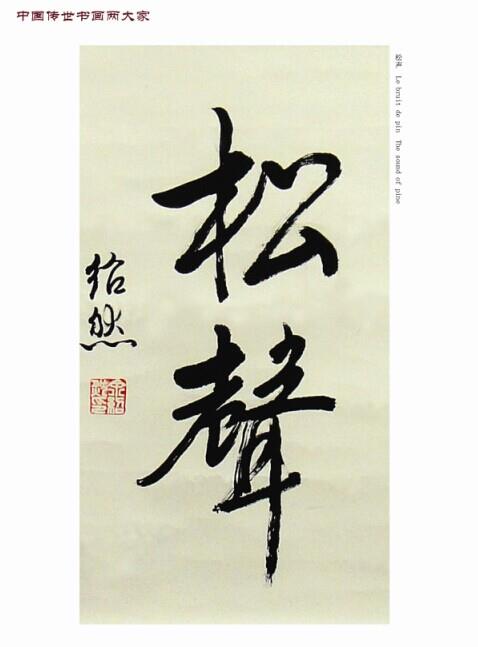 中国传世书画两大家
松声 Le bruit de pin The sound of pine
松聲
紹然